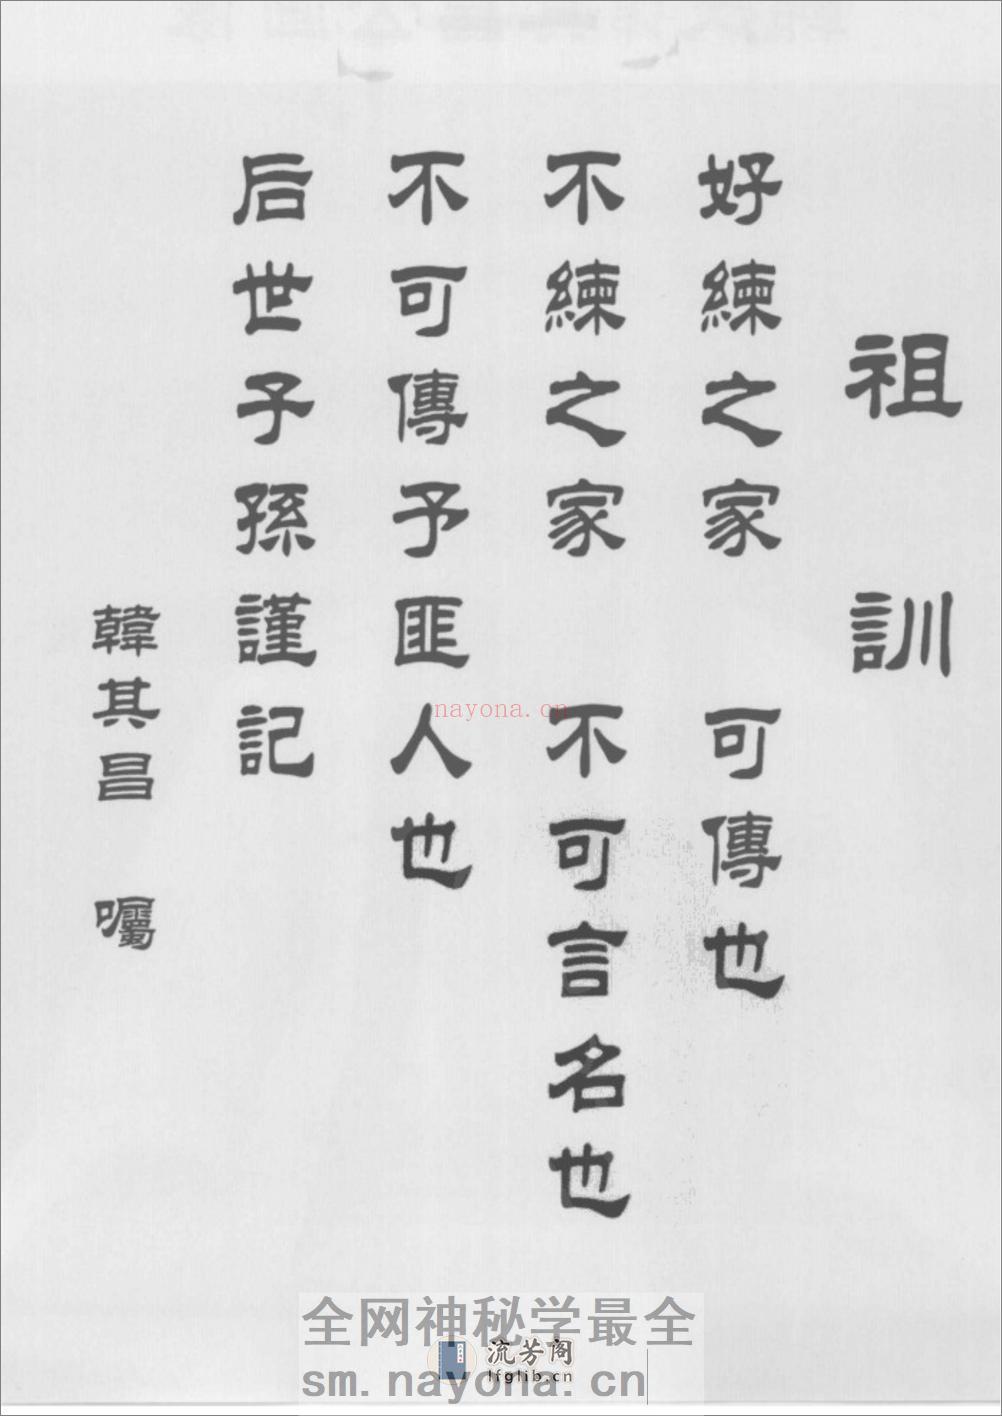 祖訓
好練之家 可傳也
不練之家 不可言名也
不可傳予匪人也
后世子孫謹記
韓其昌 囑
nayona.cn
全网神秘学最全
流芳阁
lfglib.cn
sm.nayona.cn